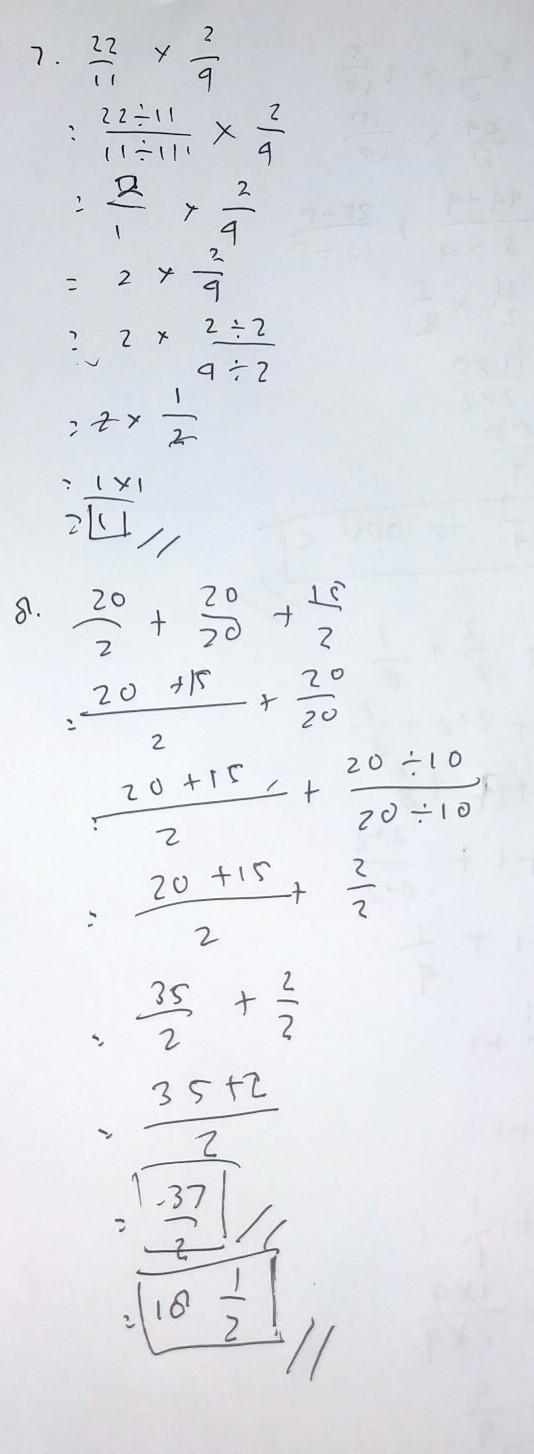 7. 22/11 × 2/9
= 22÷11/11÷11 × 2/9
= 2/1 × 2/9
= 2 × 2/9
= 2 × 2÷2/9÷2
= 2 × 1/2
= 1×1
= 1 //
8. 20/2 + 20/20 + 15/2
= 20 +15/2 + 20/20
= 20 +15/2 + 20 ÷10/20 ÷10
= 20 +15/2 + 2/2
= 35/2 + 2/2
= 35+2/2
= 37/2 //
= 18 1/2 //